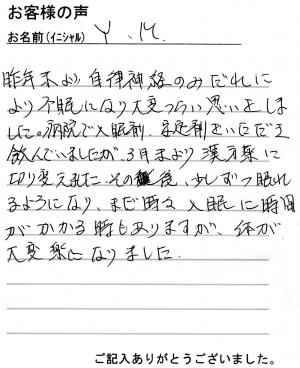 お客様の声
お名前(イニシャル) Y.M.
昨年末より自律神経のみだれに
より不眠になり大変つらい思いをしま
した。病院で入眠剤、安定剤をいただき
飲んでいましたが、3月末より漢方薬に
切り変えました。その後、少しずつ眠れ
るようになり、まだ時々入眠に時間
がかかる時もありますが、体が
大変楽になりました。
ご記入ありがとうございました。